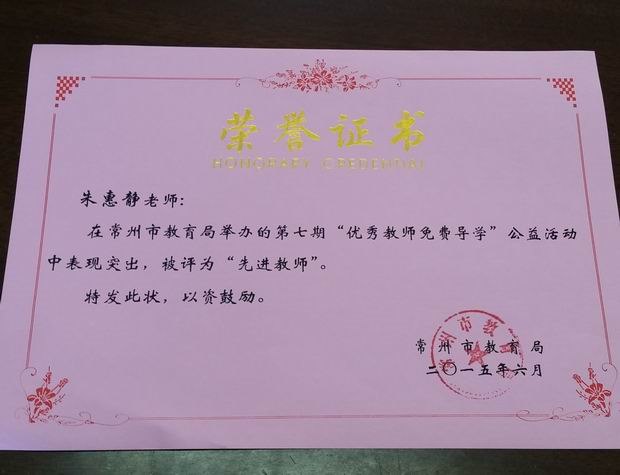 荣誉证书
HONORARY CREDENDIAL
朱惠静老师:
在常州市教育局举办的第七期“优秀教师免费导学”公益活动
中表现突出，被评为“先进教师”。
特发此状，以资鼓励。
常州市教育局
常州市教育局
二〇一五年六月